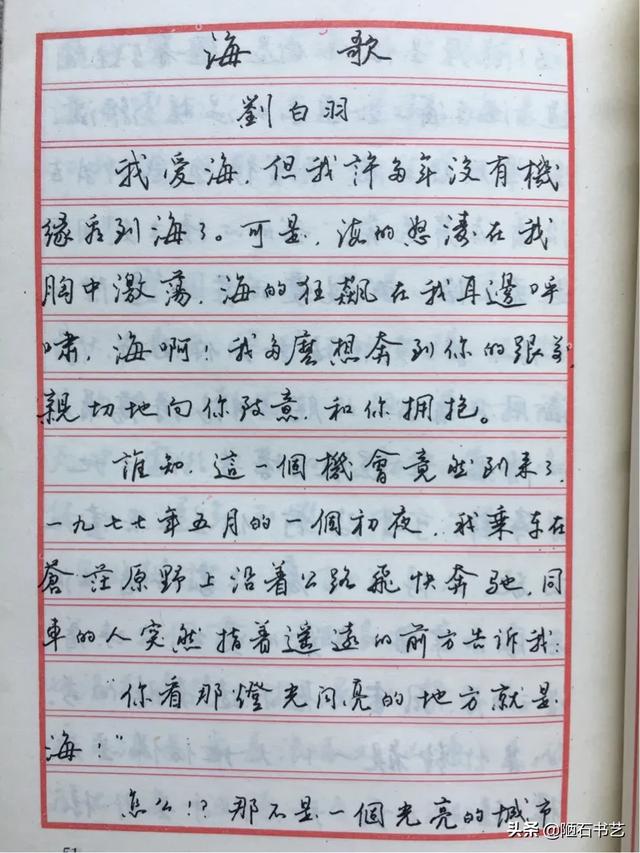 海 歌
劉白羽
我爱海,但我許多年沒有機
缘看到海了。可是,海的怒涛在我
胸中激荡,海的狂飙在我耳邊呼
啸,海啊!我多麼想奔到你的跟前,
親切地向你致意,和你拥抱。
誰知,這一個機會竟然到来了,
一九七七年五月的一個初夜,我乘车在
蒼茫原野上沿着公路飛快奔驰,同
車的人突然指着遥遠的前方告诉我:
“你看那燈光闪亮的地方就是
海!”
怎么!?那不是一個光亮的城市
51
头条 @陋石书艺